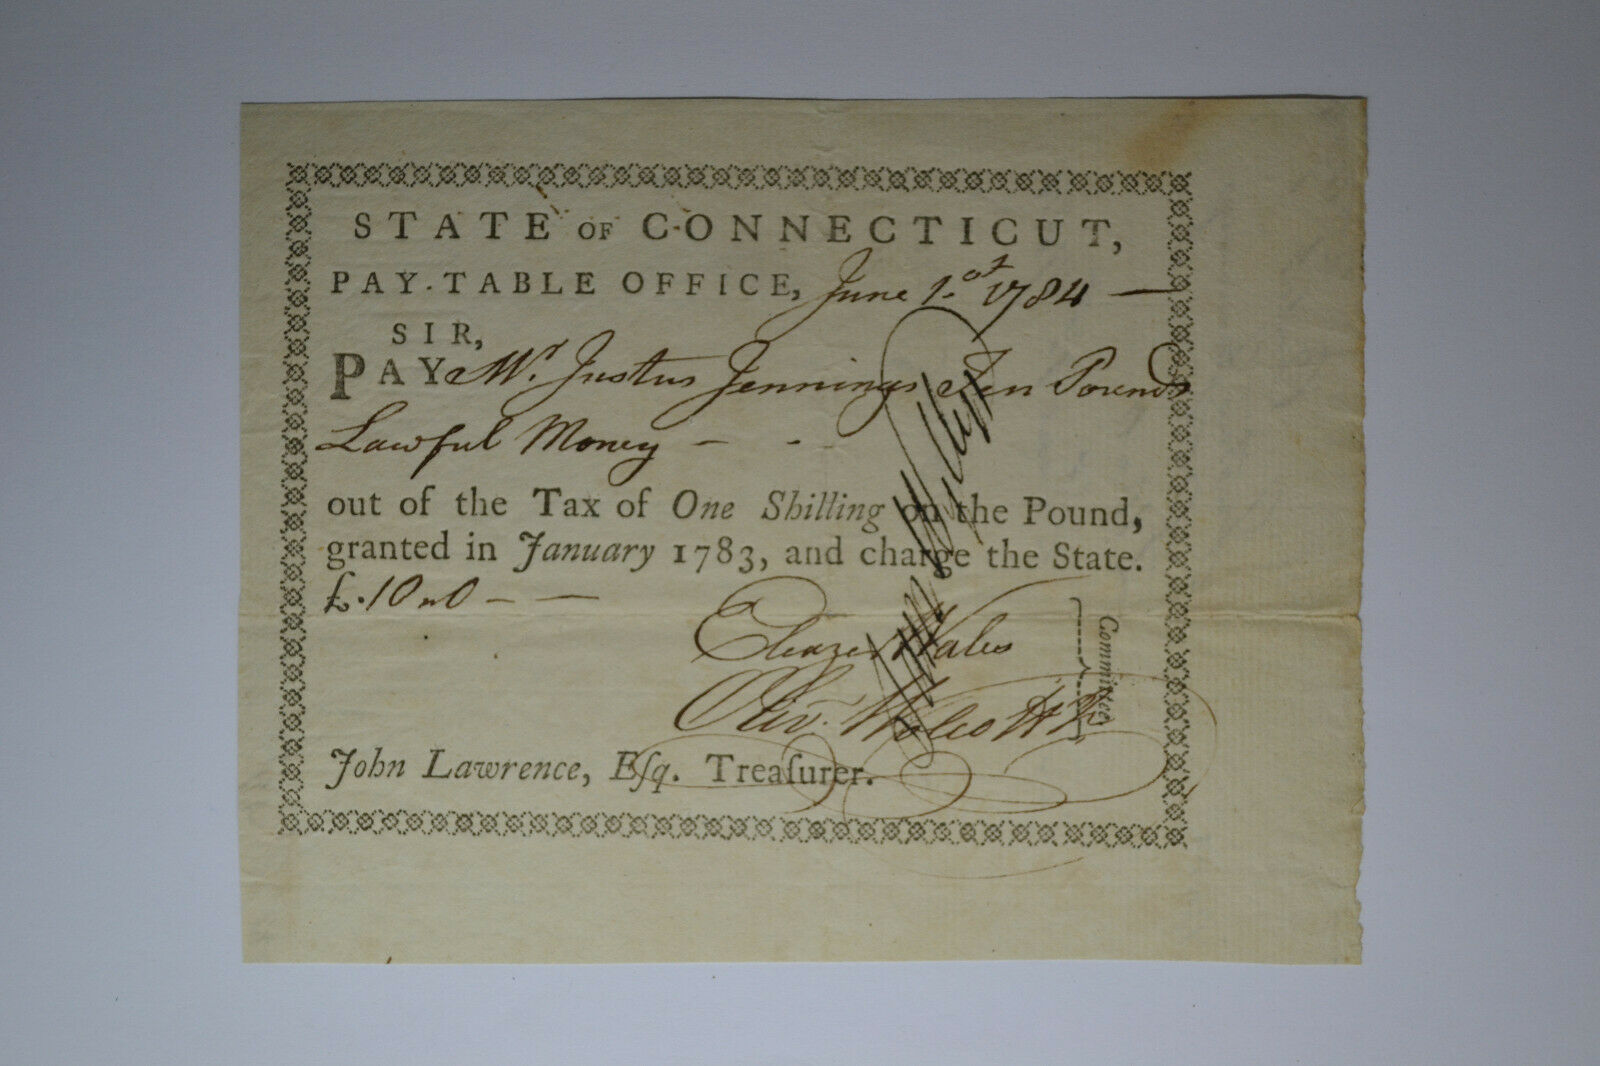 STATE OF CONNECTICUT,
PAY-TABLE OFFICE, June 1.st 1784
SIR,
PAY Mr. Justus Jennings Ten Pounds
Lawful Money
out of the Tax of One Shilling on the Pound,
granted in January 1783, and charge the State.
£.10 " 0
Eleazer Wales
Oliv. Wolcott Jr
Committee
John Lawrence, Eſq. Treaſurer.